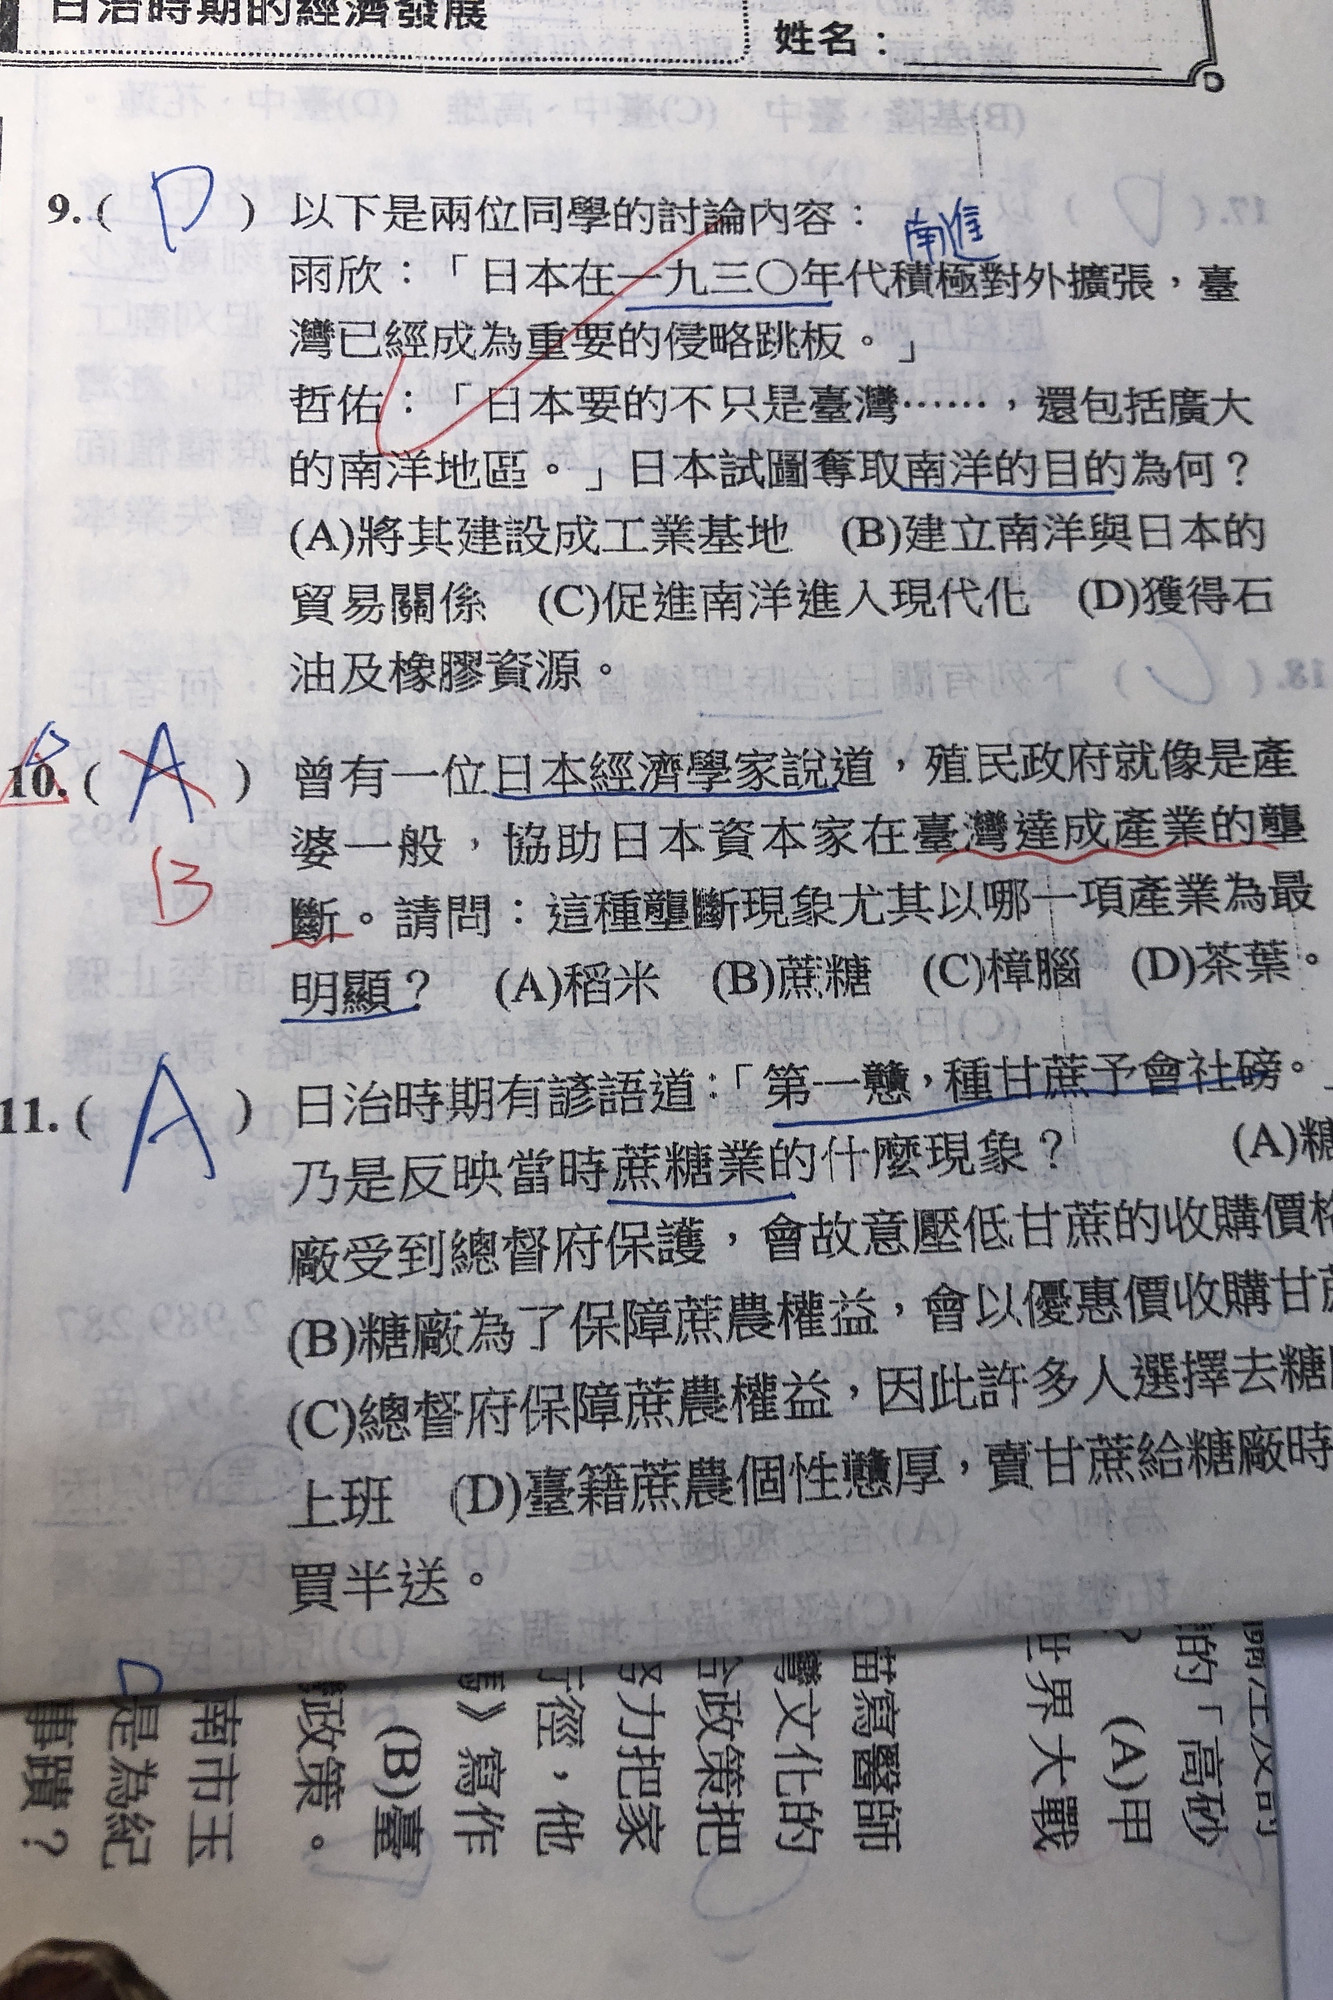 日治時期的經濟發展
姓名：
9.( D ) 以下是兩位同學的討論內容：
南進
雨欣：「日本在一九三〇年代積極對外擴張，臺
灣已經成為重要的侵略跳板。」
哲佑：「日本要的不只是臺灣……，還包括廣大
的南洋地區。」日本試圖奪取南洋的目的為何？
(A)將其建設成工業基地 (B)建立南洋與日本的
貿易關係 (C)促進南洋進入現代化 (D)獲得石
油及橡膠資源。
10.( A ) 曾有一位日本經濟學家說道，殖民政府就像是產
B
婆一般，協助日本資本家在臺灣達成產業的壟
斷。請問：這種壟斷現象尤其以哪一項產業為最
明顯？ (A)稻米 (B)蔗糖 (C)樟腦 (D)茶葉。
11.( A ) 日治時期有諺語道：「第一戇，種甘蔗予會社磅。」
乃是反映當時蔗糖業的什麼現象？ (A)糖
廠受到總督府保護，會故意壓低甘蔗的收購價格
(B)糖廠為了保障蔗農權益，會以優惠價收購甘蔗
(C)總督府保障蔗農權益，因此許多人選擇去糖
上班 (D)臺籍蔗農個性戇厚，賣甘蔗給糖廠時
買半送。
的「高砂
？ (A)甲
世界大戰
苗寫醫師
灣文化的
台政策把
努力把家
行徑，他
》寫作
(B)臺
政策。
南市玉
是為紀
事蹟？